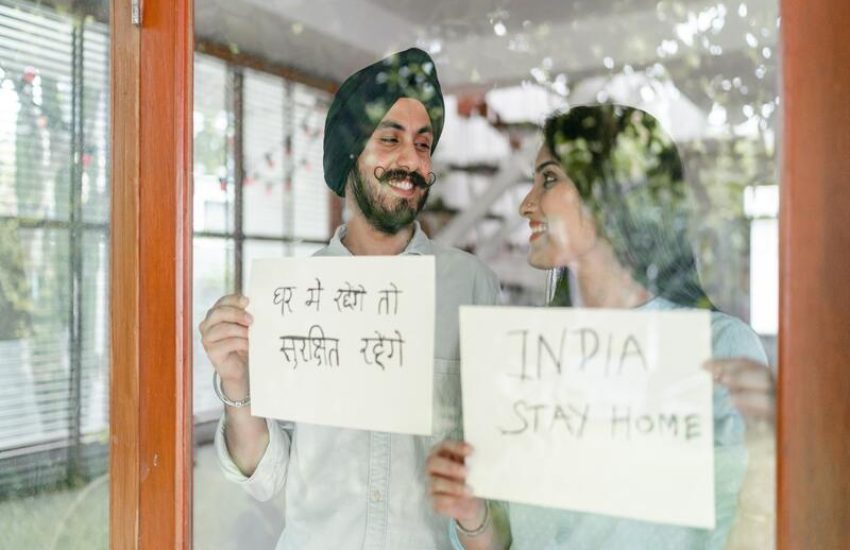 घर मे रहेंगे तो
सुरक्षित रहेंगे
INDIA
STAY HOME